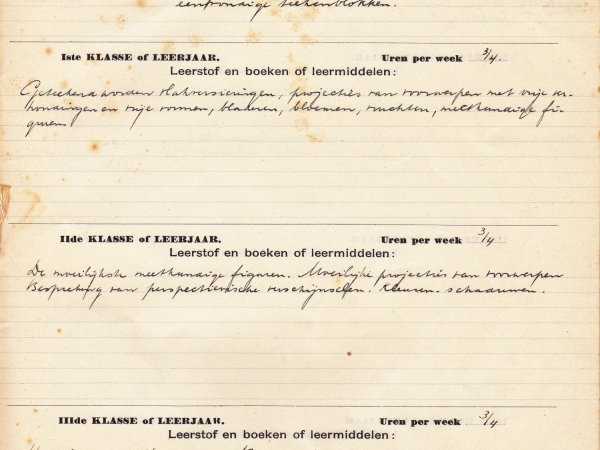 eenvoudige teekenblokken.
Iste KLASSE of LEERJAAR. Uren per week 3/4.
Leerstof en boeken of leermiddelen:
Geteekend worden vlakversieringen, projecties van voorwerpen met vrije ver-
houdingen en vrije vormen, bladeren, bloemen, vruchten, meetkundige fi-
guren
IIde KLASSE of LEERJAAR. Uren per week 3/4
Leerstof en boeken of leermiddelen:
De moeilijkste meetkundige figuren. Moeilijke projecties van voorwerpen
Bespreking van perspectievische verschijnselen. Kleuren. schaduwen.
IIIde KLASSE of LEERJAAR. Uren per week 3/4
Leerstof en boeken of leermiddelen: